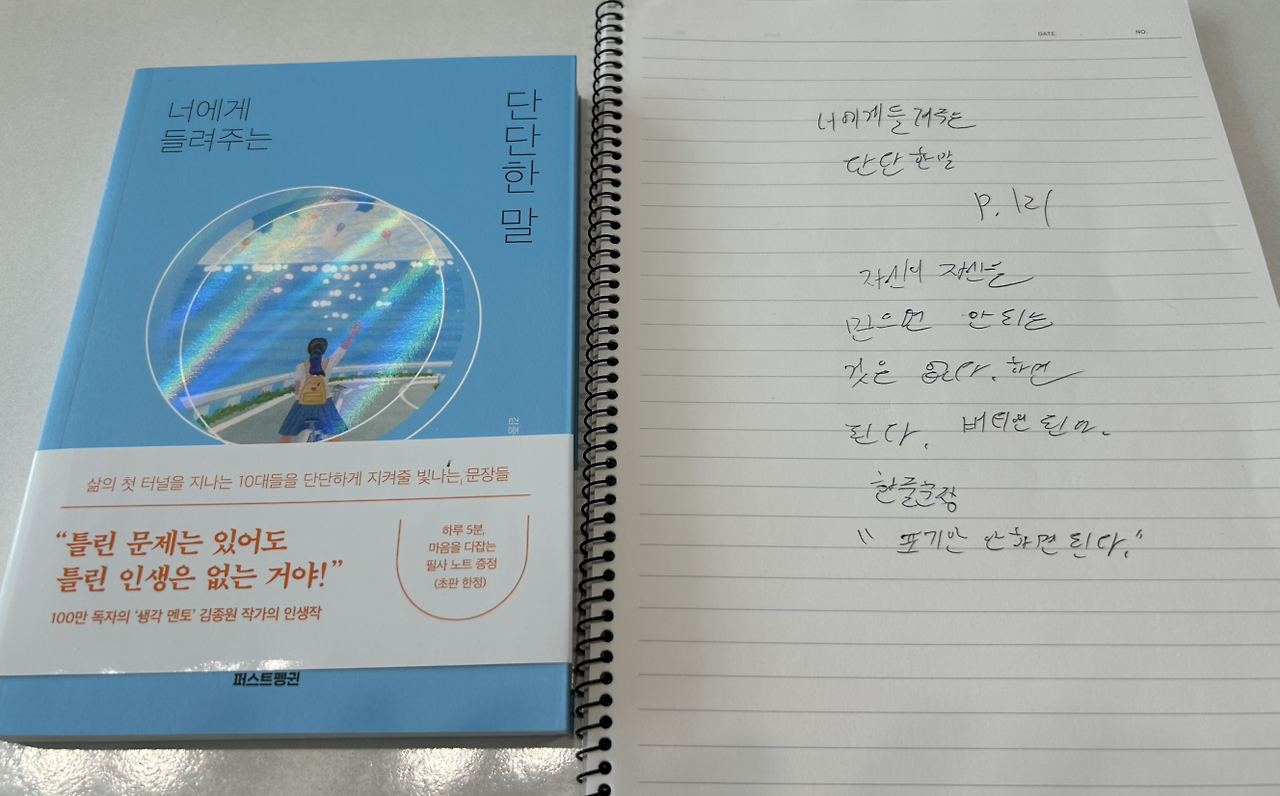 너에게
들려주는
단단한 말
삶의 첫 터널을 지나는 10대들을 단단하게 지켜줄 빛나는 문장들
“틀린 문제는 있어도
틀린 인생은 없는 거야!”
100만 독자의 ‘생각 멘토’ 김종원 작가의 인생작
하루 5분,
마음을 다잡는
필사 노트 증정
(초판 한정)
퍼스트펭귄
DATE.
NO.
너에게 들려주는
단단한 말
p. 121
자신의 자신을
믿으면 안 되는
것은 없다. 하면
된다. 버티면 된다.
한글문장
"포기만 안하면 된다."